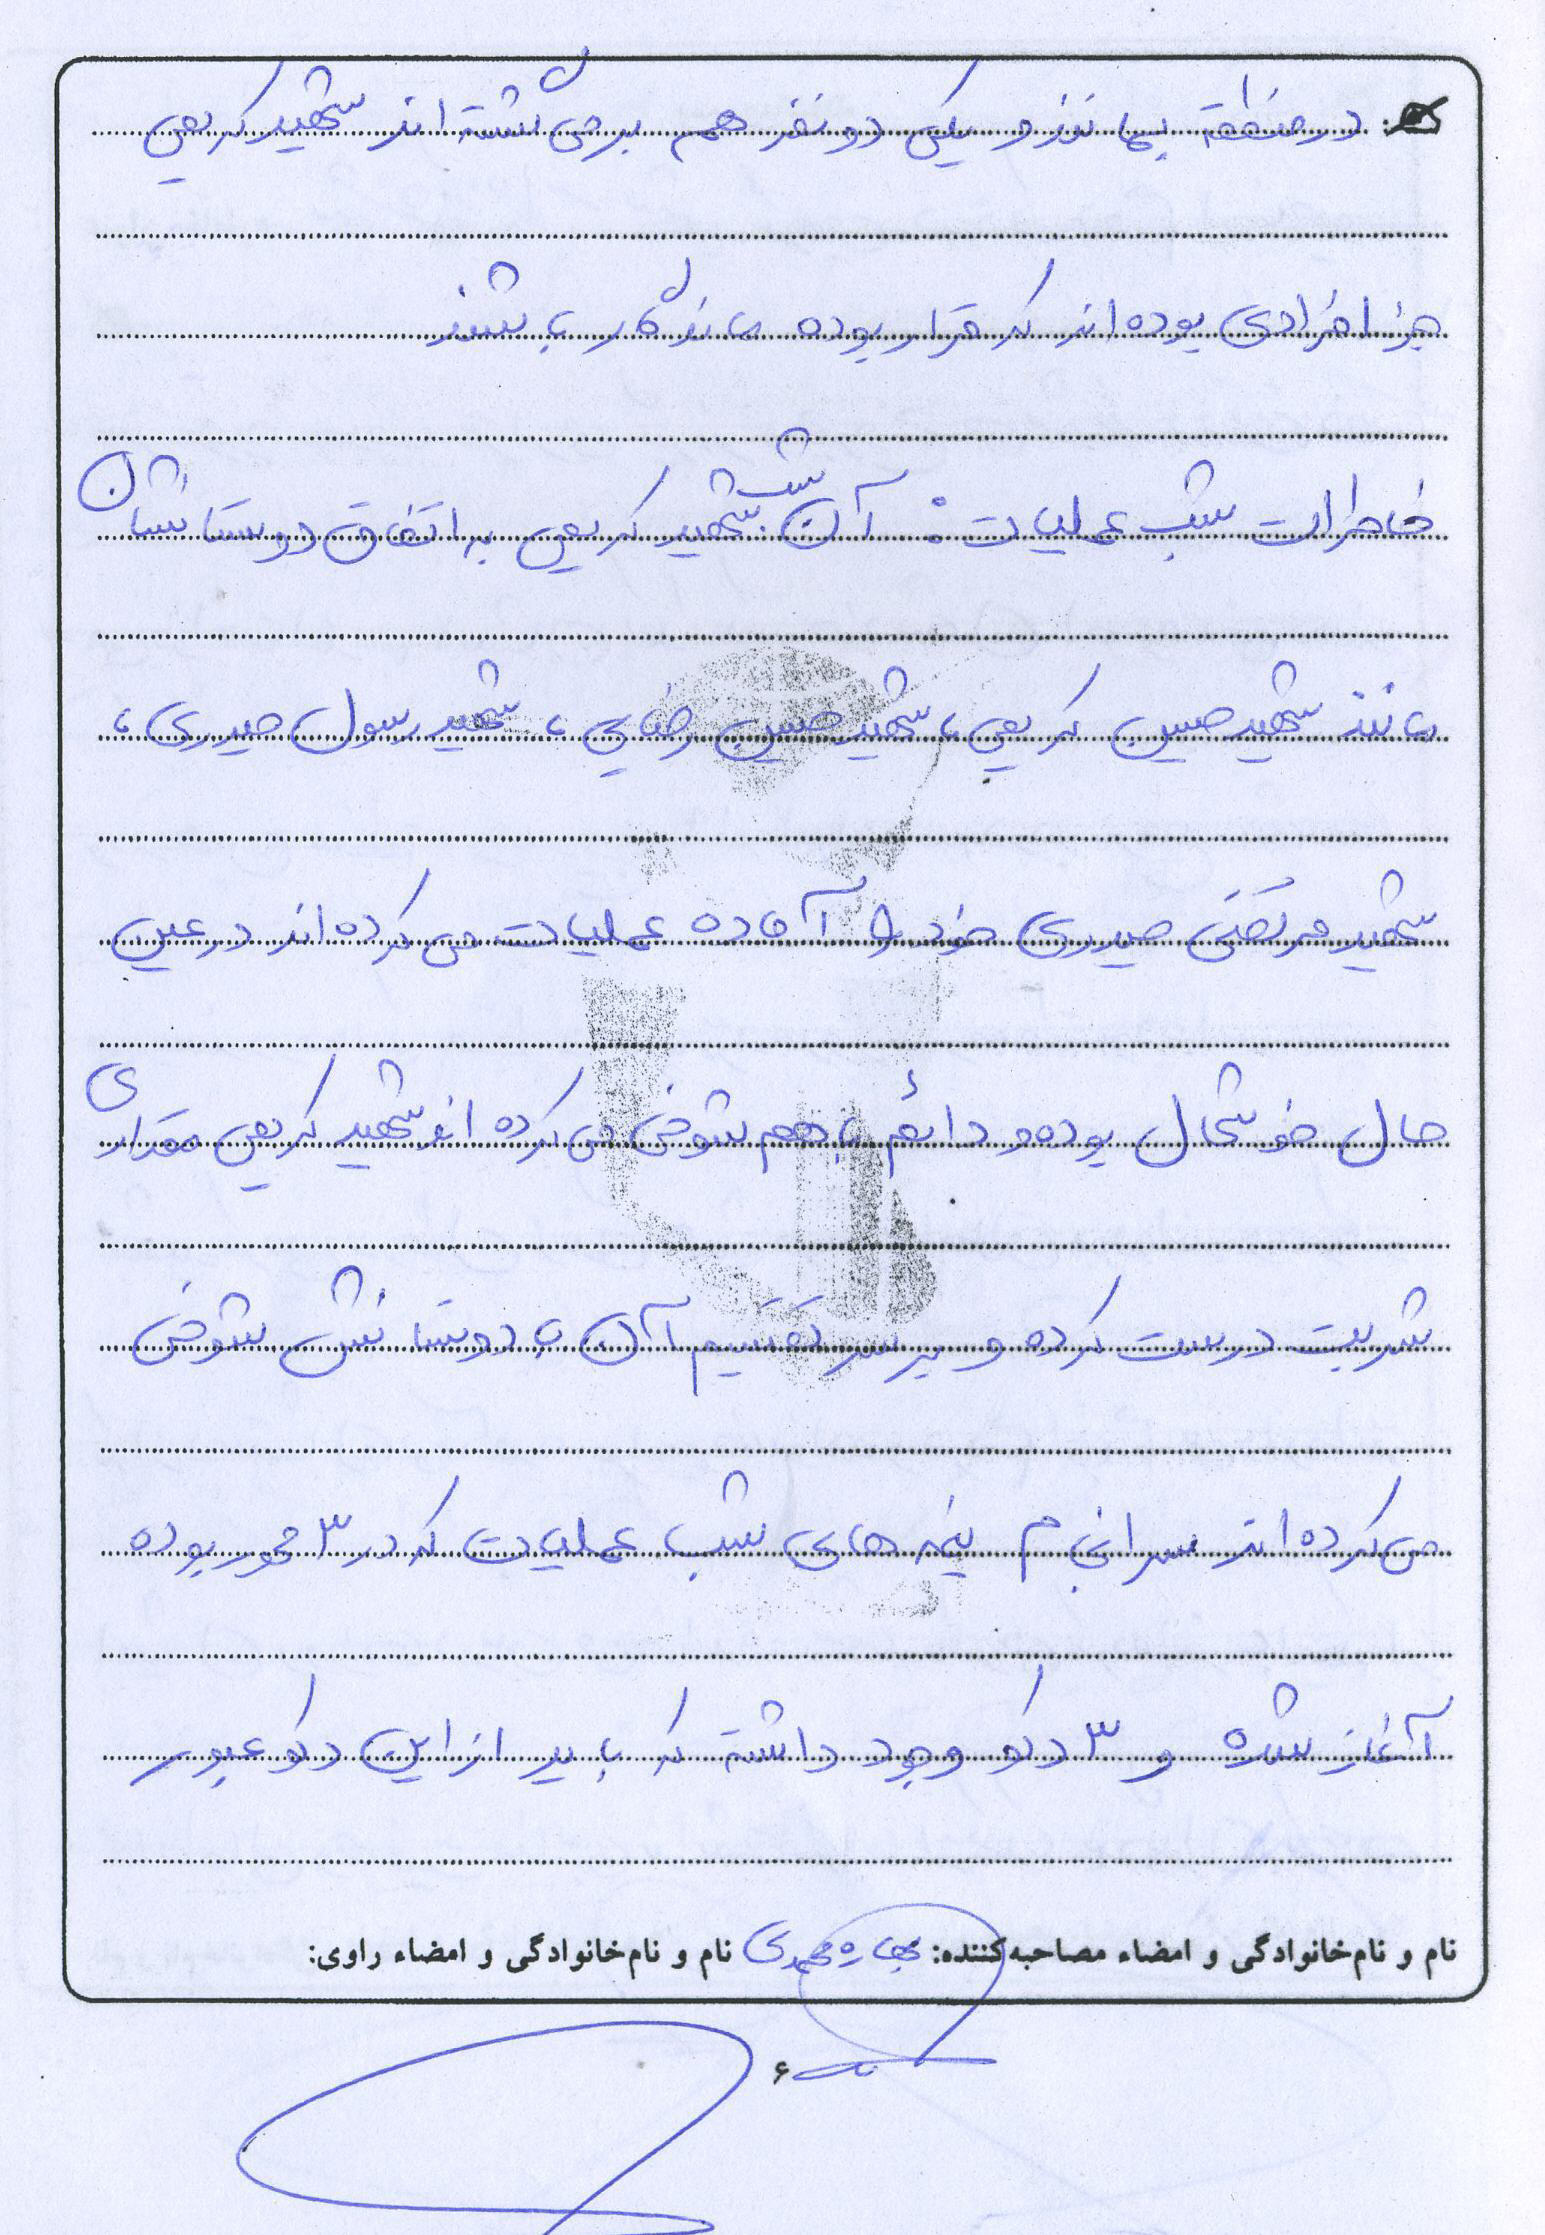 در منطقه بمانند و یکی دو نفر هم برمی گشته اند شهید کریمی
جز افرادی بوده اند که قرار بوده ماندگار باشند
خاطرات شب عملیات: آن شب شهید کریمی به اتفاق دوستانشان
مانند شهید حسین کریمی، شهید حسین رضایی، شهید رسول حیدری،
شهید مرتضی حیدری خود را آماده عملیات می کرده اند در عین
حال خوشحال بوده و دائم با هم شوخی می کرده اند شهید کریمی مقداری
شربت درست کرده و بر سر تقسیم آن با دوستانش شوخی
می کرده اند سرانجام نیمه های شب عملیات که در ۳ محور بوده
آغاز شده و ۳ دکو وجود داشته که باید از این دکو عبور
نام و نام‌خانوادگی و امضاء مصاحبه‌کننده: بهاره محمدی نام و نام‌خانوادگی و امضاء راوی:
۶